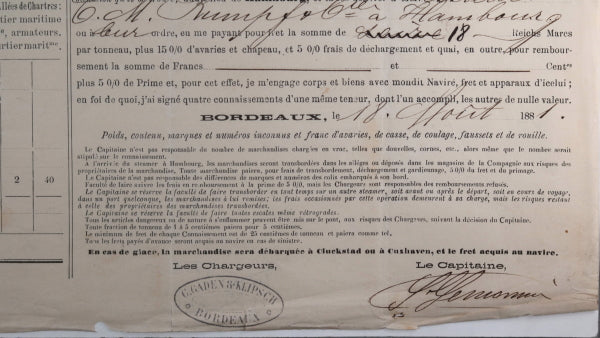 Allées de Chartres:
time maritime
e, armateurs,
rtier maritme
2 40
C. M. Rumpf & Cie à Hambourg
ou leur ordre, en me payant pour fret la somme de 18 Reichs Marcs
par tonneau, plus 15 0/0 d'avaries et chapeau, et 5 0/0 frais de déchargement et quai, en outre, pour rembour-
sement la somme de Francs et Centes
plus 5 0/0 de Prime et, pour cet effet, je m'engage corps et biens avec mondit Navire, fret et apparaux d'icelui;
en foi de quoi, j'ai signé quatre connaissements d'une même teneur, dont l'un accompli, les autres de nulle valeur.
BORDEAUX, le 18 Août 1881.
Poids, contenu, marques et numéros inconnus et franc d'avaries, de casse, de coulage, faussets et de rouille.
Le Capitaine n'est pas responsable de nombre de marchandises chargées en vrac, telles que douvelles, cornes, etc., alors même que le nombre serait
stipulé sur le connaissement.
A l'arrivée du steamer à Hambourg, les marchandises seront transbordées dans les allèges ou déposées dans les magasins de la Compagnie aux risques des
propriétaires de la marchandise. Toute marchandise paiera, pour frais de transbordement, déchargement et gardiennage, 5 0/0 du fret et du primage.
Le Capitaine n'est pas responsable des différences de marques et numéros des colis embarqués à son bord.
Faculté de faire suivre les frais en remboursement à la prime de 5 0/0, mais les Chargeurs sont responsables des remboursements refusés.
Le Capitaine se réserve la faculté de faire transborder en tout temps sur un autre steamer, soit avant ou après le départ, soit en cours de voyage,
dans un port quelconque, les marchandises à lui remises; les frais occasionnés par cette opération demeurent à sa charge, mais les risques restant
à celle des propriétaires des marchandises transbordées.
Le Capitaine se réserve la faculté de faire toutes escales même rétrogrades.
Tous les articles dangereux ou de nature à s'enflammer peuvent être mis sur le pont, aux risques des Chargeurs, suivant la décision du Capitaine.
Toute fraction de tonneau de 1 à 5 centièmes paiera pour 5 centièmes.
Le minimum de fret de chaque Connaissement est de 25 centièmes de tonneau et paiera comme tel.
Tous les frets payés d'avance seront acquis au navire en cas de sinistre.
En cas de glace, la marchandise sera débarquée à Gluckstad ou à Cuxhaven, et le fret acquis au navire.
Les Chargeurs, Le Capitaine,
C. GADEN & KLIPSCH
BORDEAUX